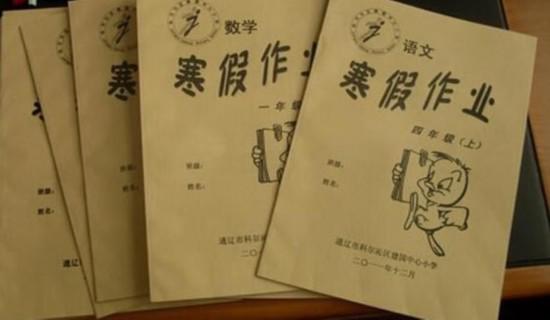 寒
班级：
姓名：
通辽
寒
数学
寒假作业
一年级
班级：
姓名：
通辽市科尔沁区
二〇一
语文
寒假作业
四年级（上）
班级：
姓名：
通辽市科尔沁区建国中心小学
二〇一一年十二月